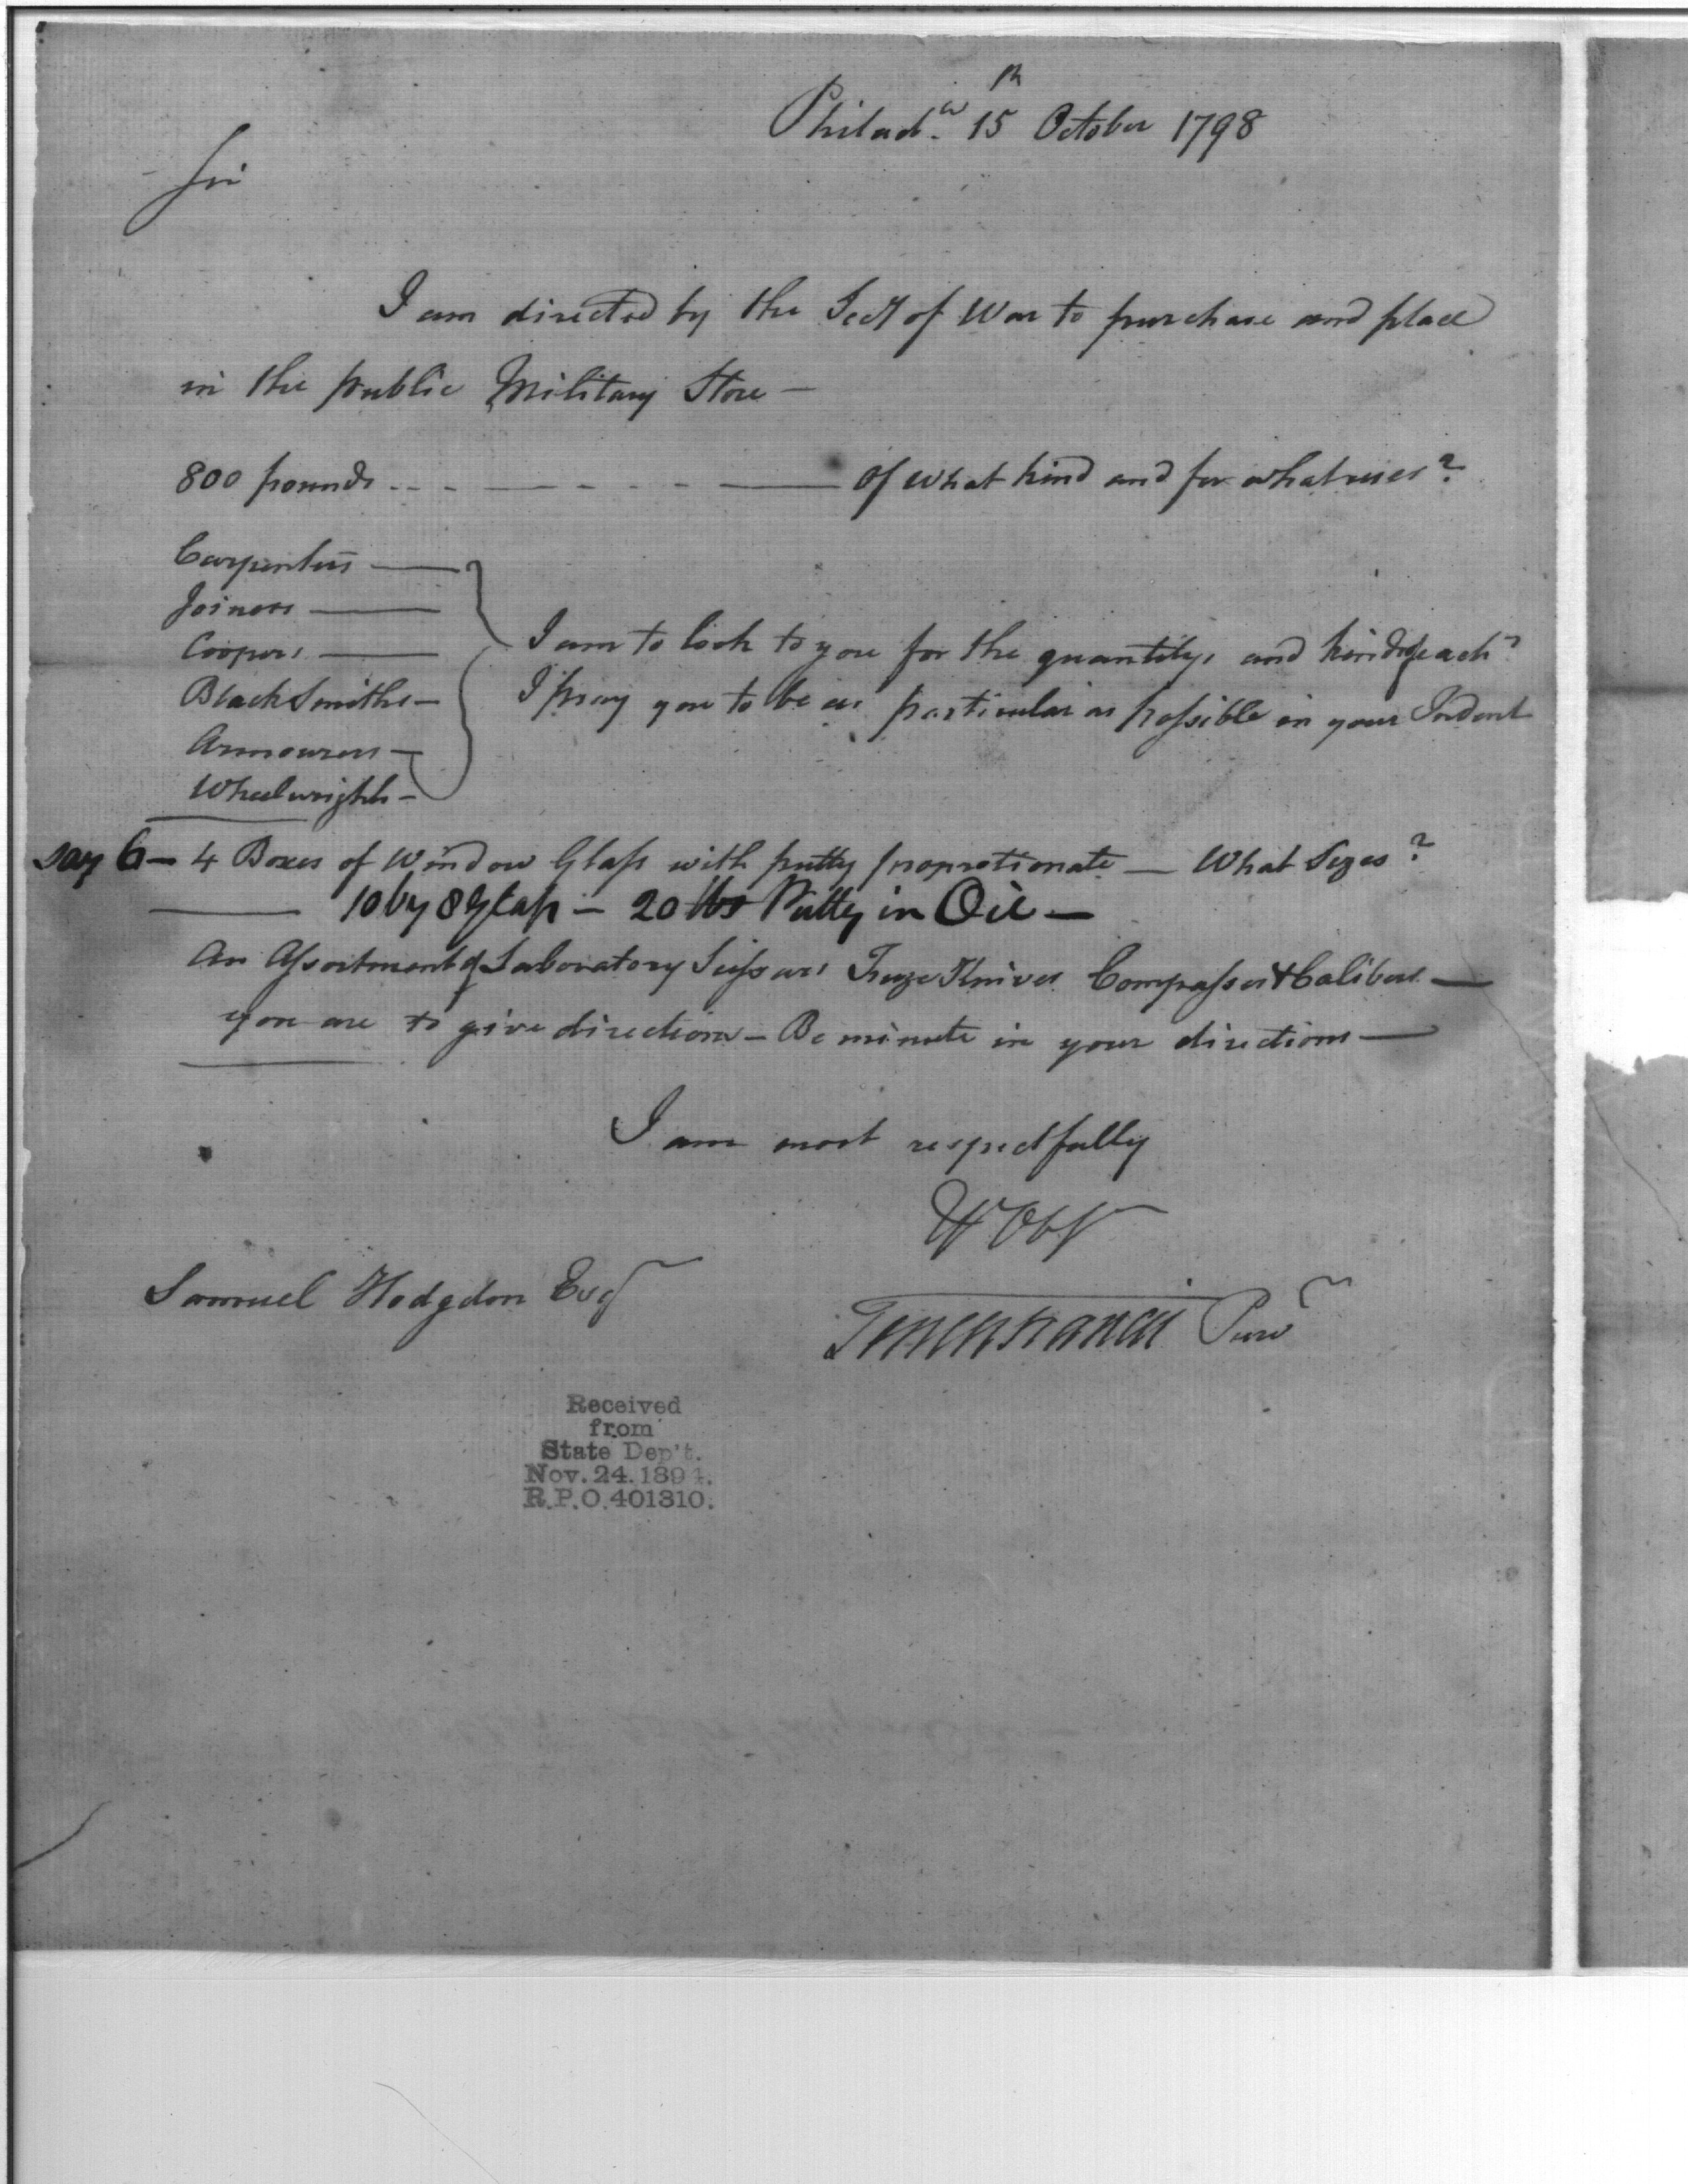 Philad.ᵃ 15th October 1798
Sir
I am directed by the Secy of War to purchase and place
in the public Military Store —
800 pounds - - - — - - - — of what kind and for what uses?
Carpenters —
Joiners —
Coopers —
BlackSmiths —
Armourers —
Wheelwrights —
I am to look to you for the quantity, and kind of each?
I pray you to be as particular as possible in your Indent
say 6 — 4 Boxes of Window Glass with putty proportionate — What Sizes?
10 by 8 Glass — 20 lbs Putty in Oil —
An Assortment of Laboratory Scissars Fuze Knives Compasses & Calibers —
you are to give directions — Be minute in your directions —
I am most respectfully
Yr Obt
Samuel Hodgdon Esqr
Tench Francis Purvr
Received
from
State Dep't.
Nov. 24. 1894.
R.P.O. 401310.